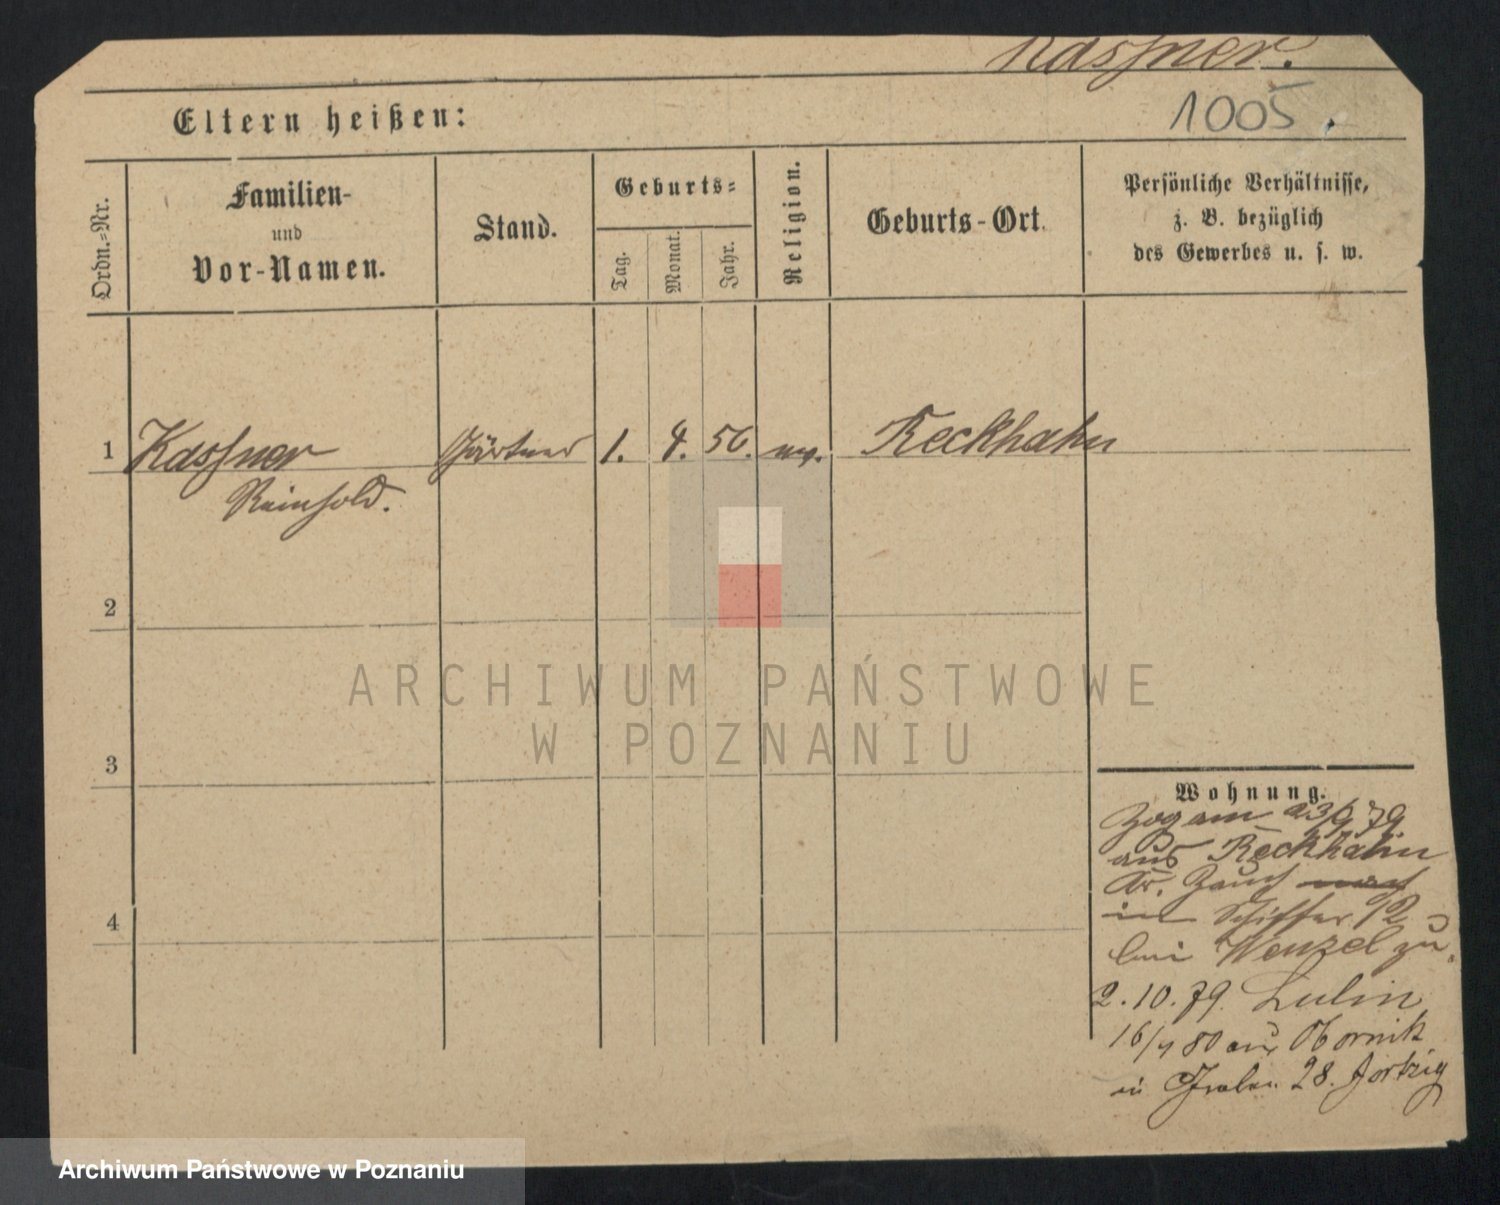 Kassner.
1005.
Eltern heißen:
Ordn.-Nr.
Familien-
und
Vor-Namen.
Stand.
Geburts-
Tag.
Monat.
Jahr.
Religion.
Geburts-Ort.
Persönliche Verhältnisse,
z. B. bezüglich
des Gewerbes u. s. w.
1 Kassner Gärtner 1. 4. 56. ev. Reckhahn
Reinhold.
2
3
4
Wohnung.
Zog am 23/9 79
aus Reckhahn
Kr. Zauch nach
in Schiffer 12
bei Wenzel zu.
2.10.79. Lulin
16/4 80 aus Obornik
in 28. Jortzig
ARCHIWUM PAŃSTWOWE
W POZNANIU
Archiwum Państwowe w Poznaniu